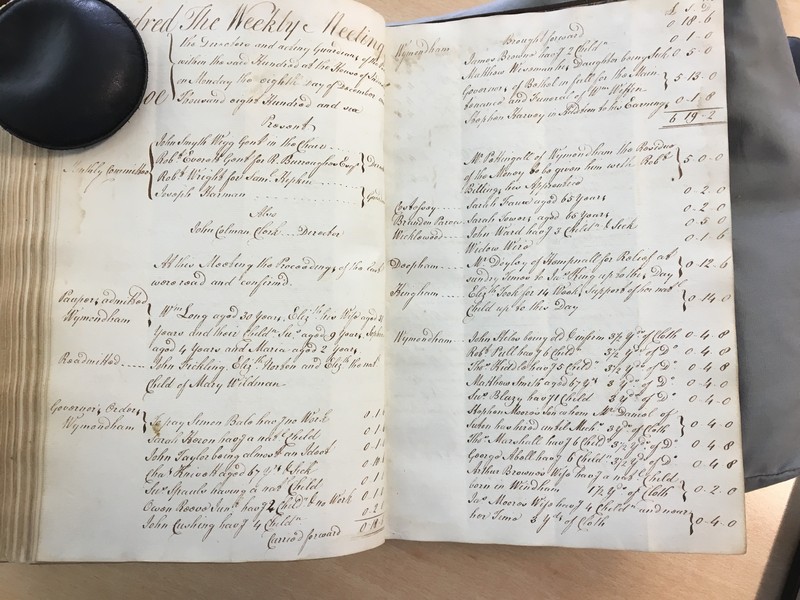 dred The Weekly Meeting
the Directors and acting Guardians of the
within the said Hundred at the House of
on Monday the eighth day of December
Thousand eight Hundred and six
Present
John Smyth Wigg Gent in the Chair
Weekly Committee
Robt Everett Gent for R. Burroughes Esqr
Robt Wright for Saml
Joseph Harman
Also
John Colman Clerk Director
At this Meeting the Proceedings of the last
were read and confirmed.
Paupers admitted
Wymondham
Wm Long aged 30 Years, Elizth his Wife aged
Years and their Childn Jno aged 9 Years,
aged 4 Years and Maria aged 2 Years
Readmitted John Fickling Elizth Norton and Elizth the natl
Child of Mary Wildman
Governors Orders
Wymondham
To pay Simon Bale havg no Work
Sarah Heron havg a natl Child
John Taylor being almost an Ideot
Chas aged 67 Yrs & Sick
Jno having a natl Child
Owen Reeve Junr havg 4 Childn & no Work
John Cushing havg 4 Childn
Carried forward
£ s d
Brought forward 0 18 6
Wymondham James Browne havg 2 Childn 0 1 0
Matthew Daughter being sick 0 5 0
Governor of Bethel in full for the Main-
tenance and Funeral of Wm 5 13 0
Stephen Harvey in Addition to his Earnings 0 1 8
6 19 2
Mr Pattingall of Wymondham the Residue
of the Money to be given him with Robt
Billing his Apprentice 5 0 0
Costessey Sarah aged 65 Years 0 2 0
Brandon Parva Sarah Tower aged 66 Years 0 2 0
Wicklewood John Ward havg 3 Childn & Sick 0 5 0
Widow Wire 0 1 6
Deopham Mr Doyley of Hempnall for Relief at
sundry times to Jno King up to this Day 0 12 6
Hingham Elizth Took for 14 Weeks Support of her natl
Child up to this Day 0 14 0
Wymondham John being old & infirm 3½ Yds of Cloth 0 4 8
Robt Pull havg 6 Childn 3½ Yds of Do 0 4 8
Thos Kiddle havg 5 Childn 3½ Yds of Do 0 4 8
Matthew Smith aged 67 Yrs 3 Yds of Do 0 4 0
Jno Blazy havg 1 Child 3 Yds of Do 0 4 0
Stephen Moore whom Mr Daniel of
has hired until Michs 3 Yds of Cloth 0 4 0
Thos Marshall havg 6 Childn 3½ Yds of Do 0 4 8
George Aboll havg 6 Childn 3½ Yds of Do 0 4 8
Arthur Browne's Wife havg a natl Child
born in Windham 1½ Yds of Cloth 0 2 0
Jno Moores Wife havg 4 Childn and near
her time 3 Yds of Cloth 0 4 0